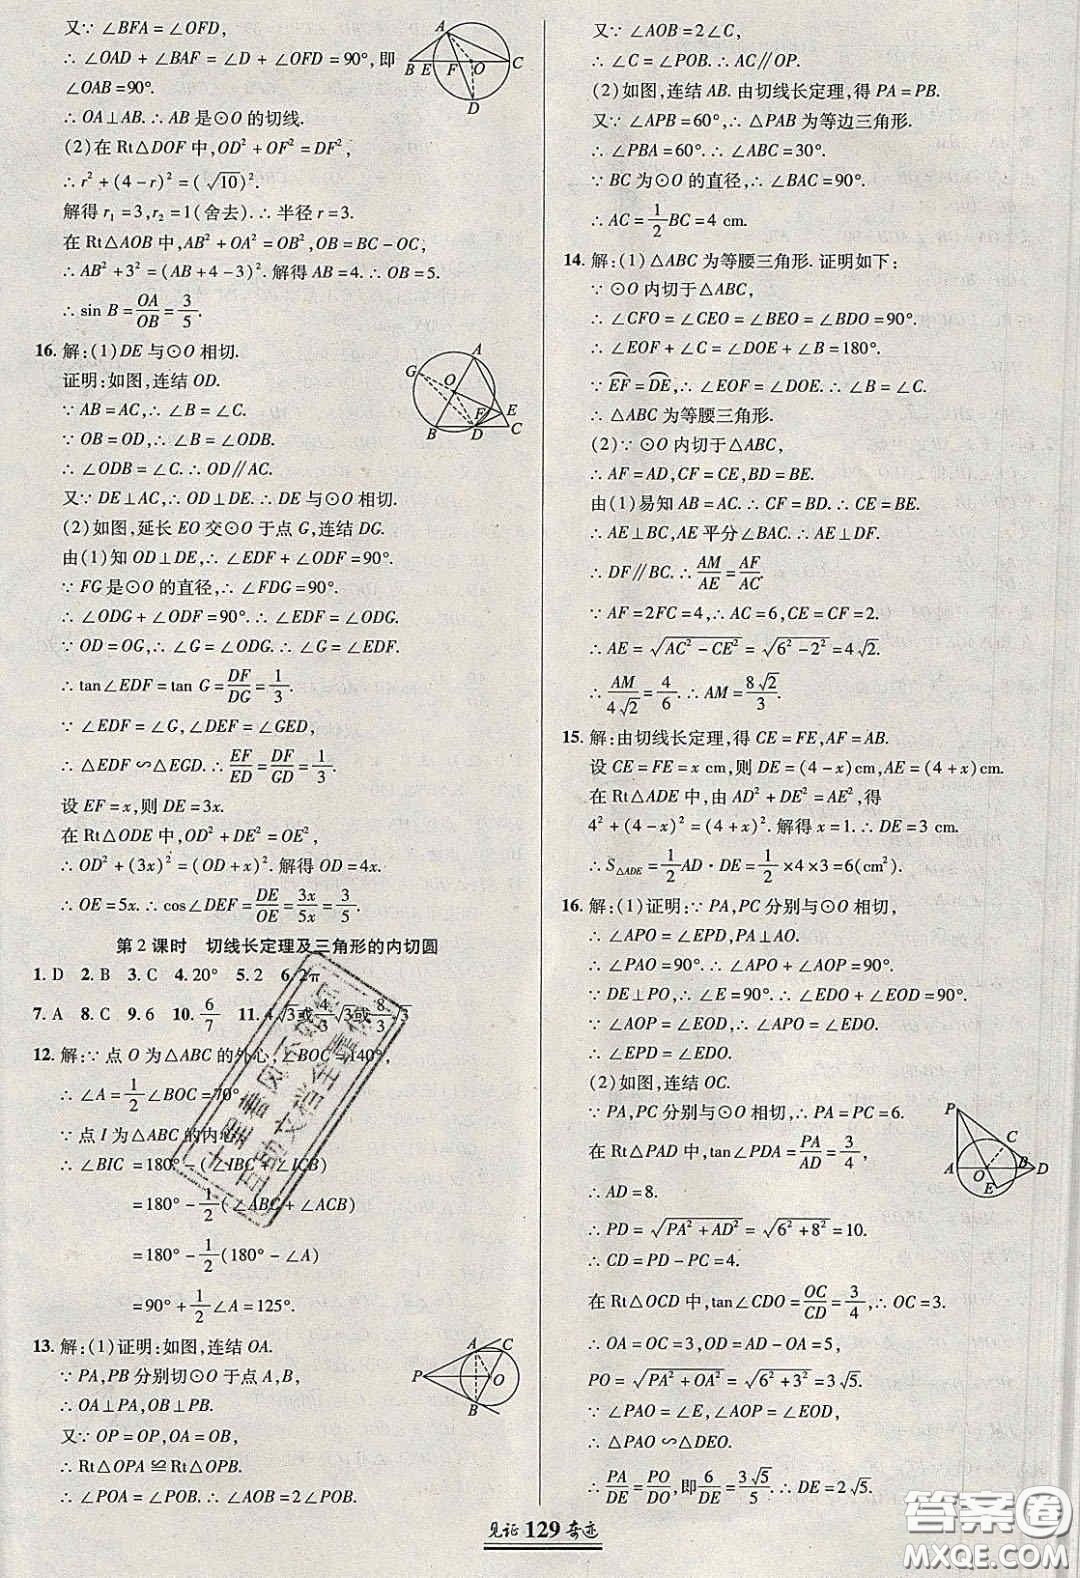 又∵ ∠BFA=∠OFD,
∴ ∠OAD+∠BAF=∠D+∠OFD=90°,即
∠OAB=90°.
∴ OA⊥AB.∴ AB是⊙O的切线.
(2)在Rt△DOF中,OD²+OF²=DF²,
∴ r²+(4-r)²=(√10)².
解得r₁=3,r₂=1(舍去).∴ 半径r=3.
在Rt△AOB中,AB²+OA²=OB²,OB=BC-OC,
∴ AB²+3²=(AB+4-3)².解得AB=4.∴ OB=5.
∴ sin B=OA/OB=3/5.
A
B E F O C
D
16. 解:(1)DE与⊙O相切.
证明:如图,连结OD.
∵ AB=AC,∴ ∠B=∠C.
∵ OB=OD,∴ ∠B=∠ODB.
∴ ∠ODB=∠C.∴ OD∥AC.
又∵ DE⊥AC,∴ OD⊥DE.∴ DE与⊙O相切.
(2)如图,延长EO交⊙O于点G,连结DG.
由(1)知OD⊥DE,∴ ∠EDF+∠ODF=90°.
∵ FG是⊙O的直径,∴ ∠FDG=90°.
∴ ∠ODG+∠ODF=90°.∴ ∠ODG=∠EDF.
∵ OD=OG,∴ ∠G=∠ODG.∴ ∠G=∠EDF.
∴ tan∠EDF=tan G=DF/DG=1/3.
∵ ∠EDF=∠G,∠DEF=∠GED,
∴ △EDF∽△EGD.∴ EF/ED=DF/GD=1/3.
设EF=x,则DE=3x.
在Rt△ODE中,OD²+DE²=OE²,
∴ OD²+(3x)²=(OD+x)².解得OD=4x.
∴ OE=5x.∴ cos∠DEF=DE/OE=3x/5x=3/5.
A
G
O
F E
B D C
第2课时 切线长定理及三角形的内切圆
1. D 2. B 3. C 4. 20° 5. 2 6. 2π
7. A 8. C 9. 6 10. 6/7 11. 4√3或4/3√3或8/3√3
12. 解:∵ 点O为△ABC的外心,∠BOC=140°,
∴ ∠A=1/2∠BOC=70°.
∵ 点I为△ABC的内心,
∴ ∠BIC=180°-(∠IBC+∠ICB)
=180°-1/2(∠ABC+∠ACB)
=180°-1/2(180°-∠A)
=90°+1/2∠A=125°.
13. 解:(1)证明:如图,连结OA.
∵ PA,PB分别切⊙O于点A,B,
∴ OA⊥PA,OB⊥PB.
又∵ OP=OP,OA=OB,
∴ Rt△OPA≌Rt△OPB.
∴ ∠POA=∠POB.∴ ∠AOB=2∠POB.
A C
P O
B
又∵ ∠AOB=2∠C,
∴ ∠C=∠POB.∴ AC∥OP.
(2)如图,连结AB.由切线长定理,得PA=PB.
又∵ ∠APB=60°,∴ △PAB为等边三角形.
∴ ∠PBA=60°.∴ ∠ABC=30°.
∵ BC为⊙O的直径,∴ ∠BAC=90°.
∴ AC=1/2BC=4 cm.
14. 解:(1)△ABC为等腰三角形.证明如下:
∵ ⊙O内切于△ABC,
∴ ∠CFO=∠CEO=∠BEO=∠BDO=90°.
∴ ∠EOF+∠C=∠DOE+∠B=180°.
∵ EF=DE,∴ ∠EOF=∠DOE.∴ ∠B=∠C.
∴ △ABC为等腰三角形.
(2)∵ ⊙O内切于△ABC,
∴ AF=AD,CF=CE,BD=BE.
由(1)易知AB=AC.∴ CF=BD.∴ CE=BE.
∴ AE⊥BC,AE平分∠BAC.∴ AE⊥DF.
∴ DF∥BC.∴ AM/AE=AF/AC.
∵ AF=2FC=4,∴ AC=6,CE=CF=2.
∴ AE=√(AC²-CE²)=√(6²-2²)=4√2.
∴ AM/4√2=4/6.∴ AM=8√2/3.
15. 解:由切线长定理,得CE=FE,AF=AB.
设CE=FE=x cm,则DE=(4-x)cm,AE=(4+x)cm.
在Rt△ADE中,由AD²+DE²=AE²,得
4²+(4-x)²=(4+x)².解得x=1.∴ DE=3 cm.
∴ S△ADE=1/2AD·DE=1/2×4×3=6(cm²).
16. 解:(1)证明:∵ PA,PC分别与⊙O相切,
∴ ∠APO=∠EPD,PA⊥AO.
∴ ∠PAO=90°.∴ ∠APO+∠AOP=90°.
∵ DE⊥PO,∴ ∠E=90°.∴ ∠EOD+∠EDO=90°.
∵ ∠AOP=∠EOD,∴ ∠APO=∠EDO.
∴ ∠EPD=∠EDO.
(2)如图,连结OC.
∵ PA,PC分别与⊙O相切,∴ PA=PC=6.
在Rt△PAD中,tan∠PDA=PA/AD=3/4,
∴ AD=8.
∴ PD=√(PA²+AD²)=√(6²+8²)=10.
∴ CD=PD-PC=4.
在Rt△OCD中,tan∠CDO=OC/CD=3/4,∴ OC=3.
∴ OA=OC=3,OD=AD-OA=5.
PO=√(PA²+OA²)=√(6²+3²)=3√5.
∵ ∠PAO=∠E,∠AOP=∠EOD,
∴ △PAO∽△DEO.
∴ PA/DE=PO/DO,即6/DE=3√5/5.∴ DE=2√5.
P
C
A O B D
E
见证 129 奇迹
答案圈
MXQE.COM